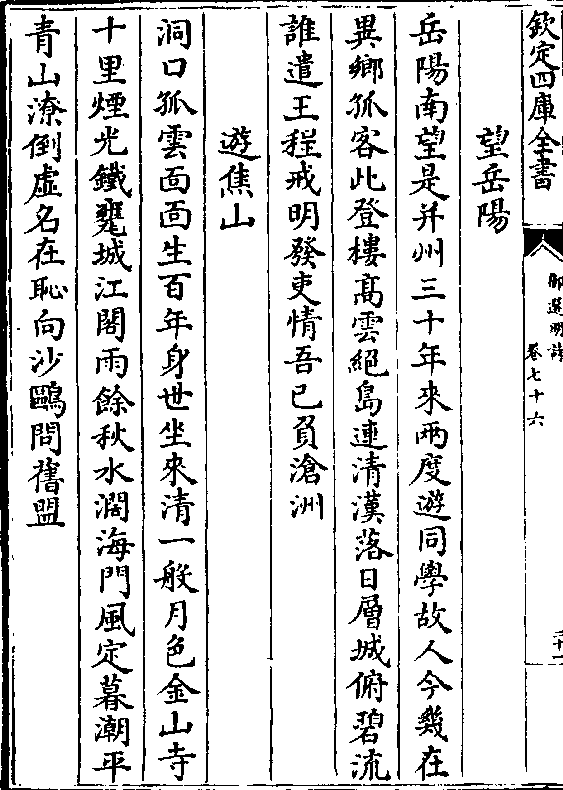 欽定四庫全書
御選明詩
卷七十六
望岳陽
岳陽南望是并州三十年來兩度遊同學故人今幾在
異鄉孤客此登樓髙雲絕島連清漢落日層城俯碧流
誰遣王程戒明發吏情吾已負滄洲
遊焦山
洞口孤雲面面生百年身世坐來清一般月色金山寺
十里煙光鐵甕城江閣雨餘秋水濶海門風定暮潮平
青山潦倒虛名在恥向沙鷗問舊盟